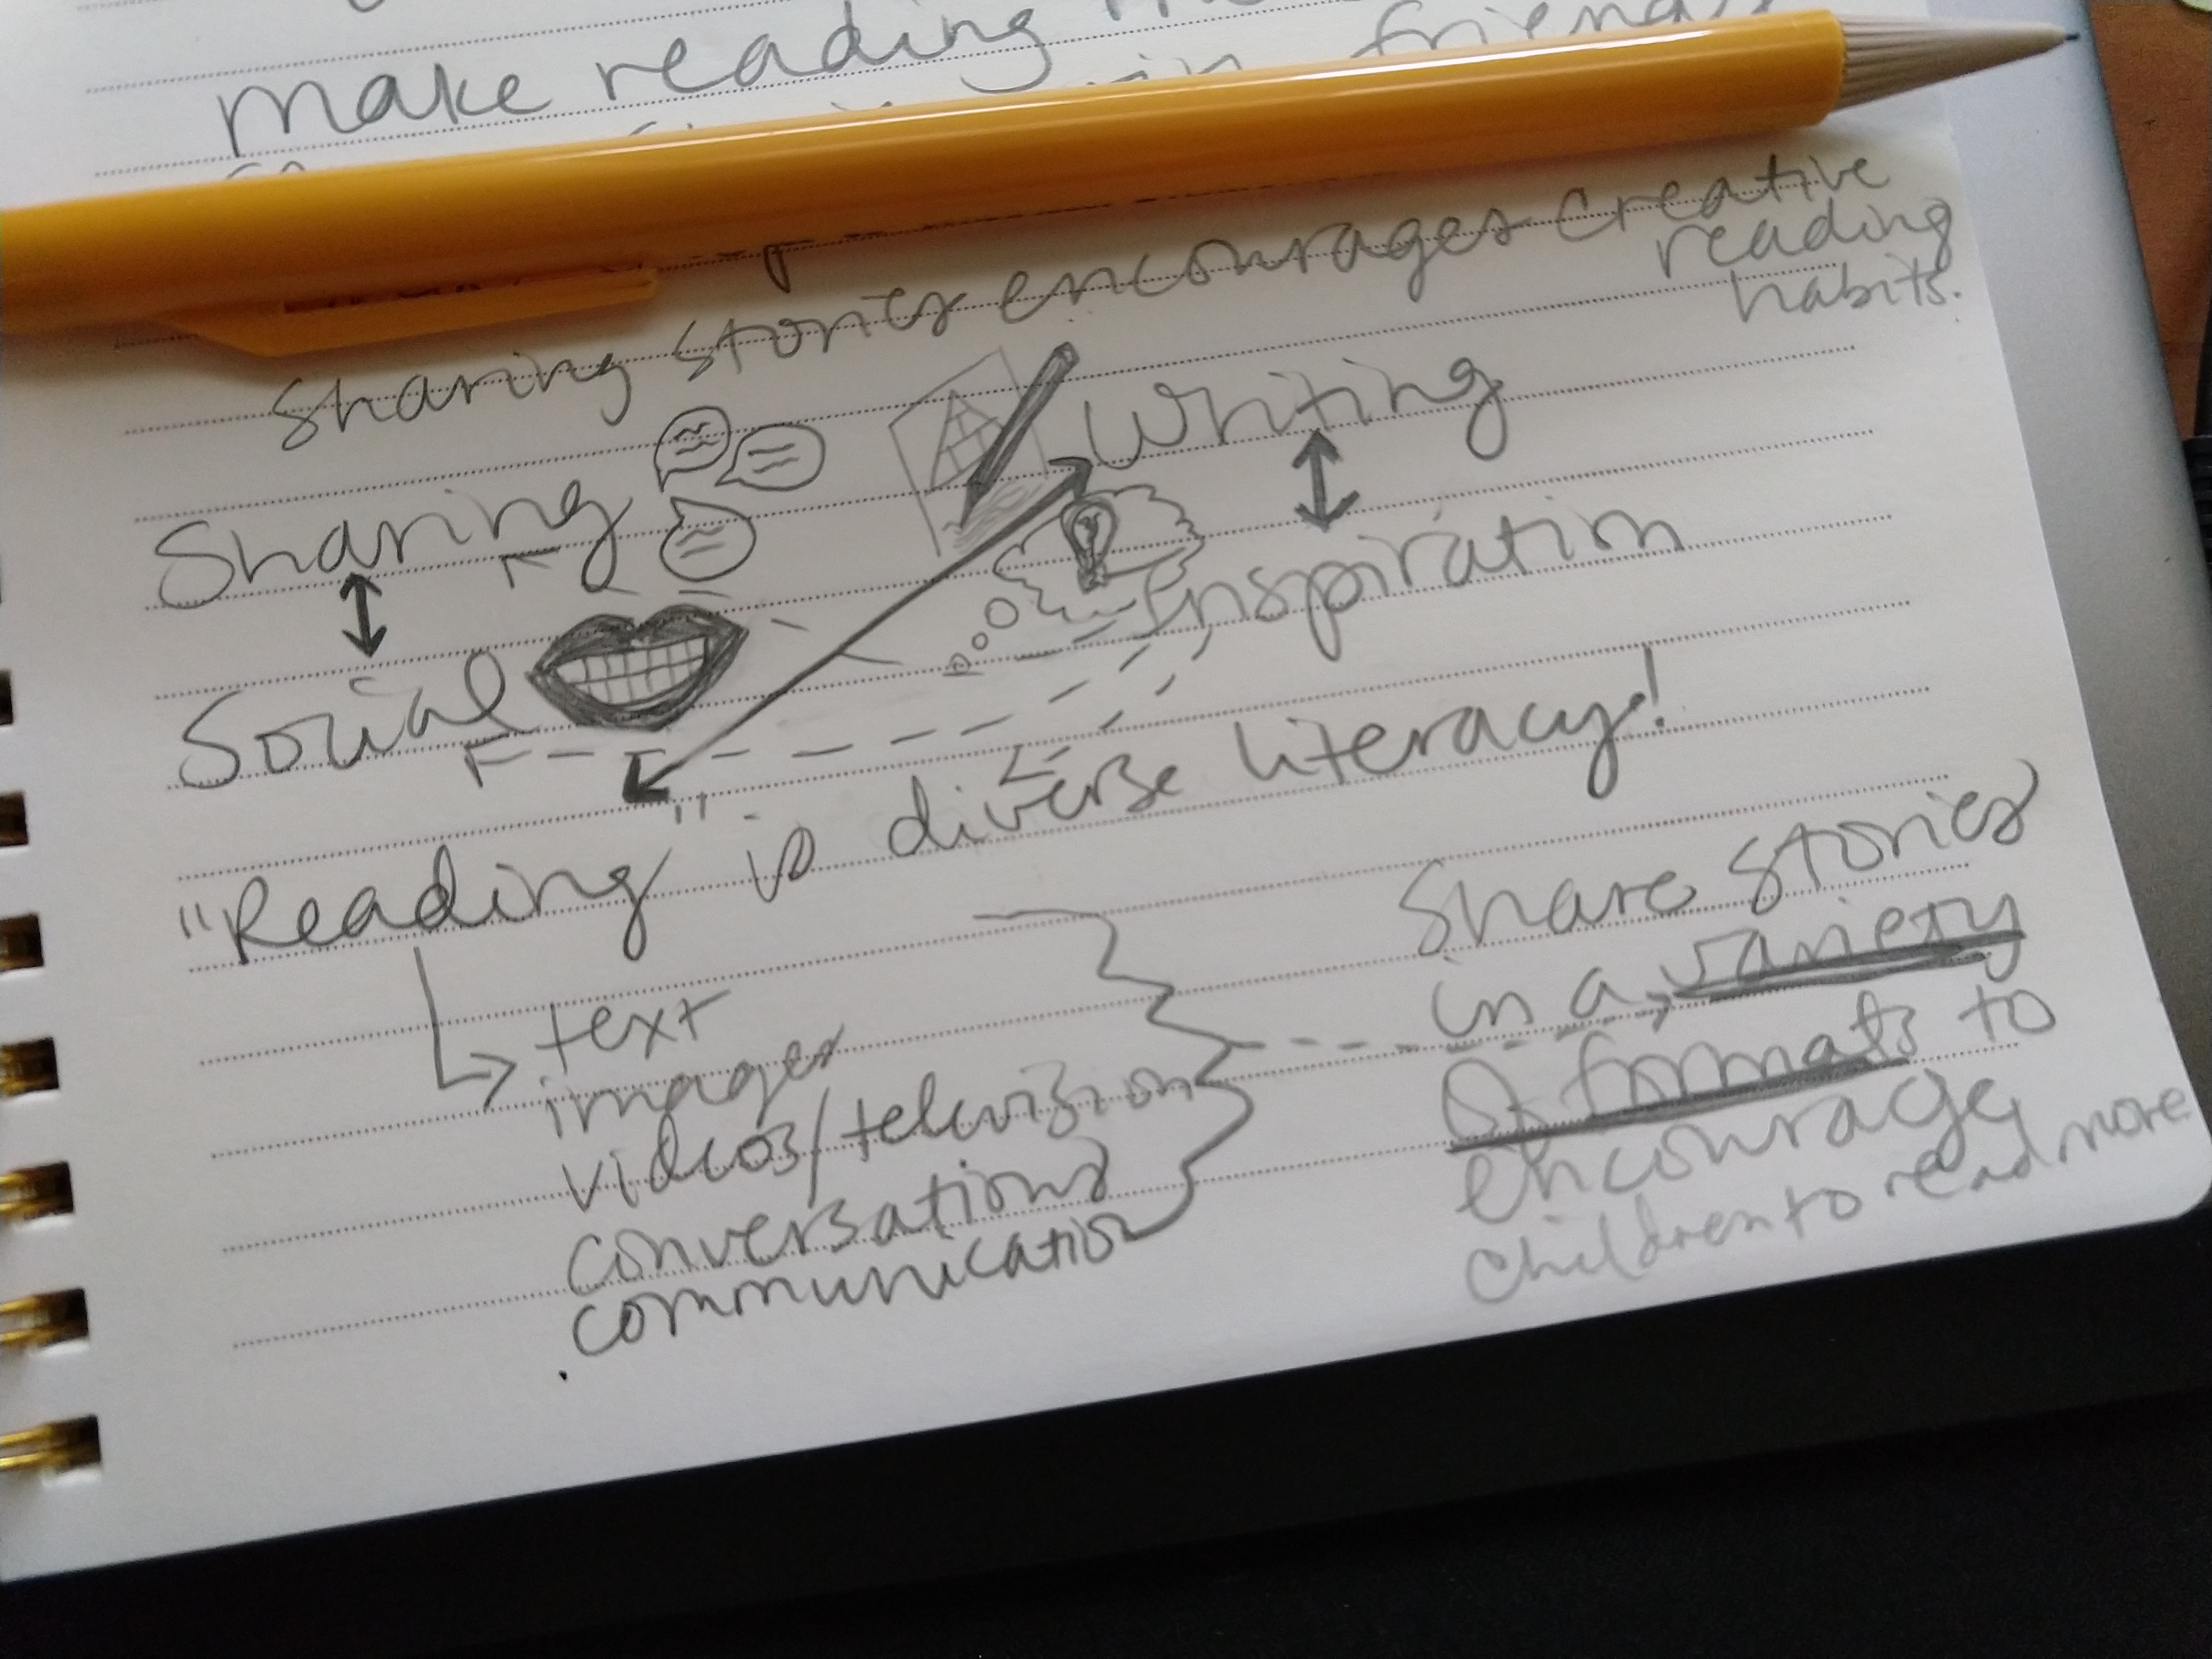 make reading
friends
sharing stories encourages creative
reading
habits.
Sharing
Writing
Social
Inspiration
"Reading" is diverse literacy!
text
images
videos/television
conversations
communication
Share stories
in a variety
of formats to
encourage
children to read more